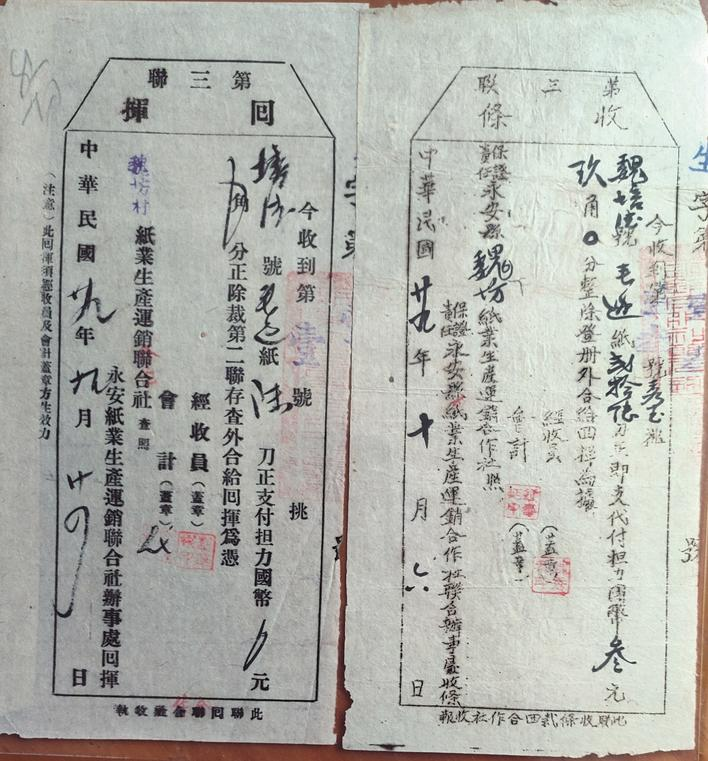 第三聯
回揮
今收到第 號 挑
號 紙 刀正支付担力國幣 元
角 分正除裁第二聯存查外合給回揮爲憑
經收員（蓋章）
會計（蓋章）
魏坊村紙業生產運銷聯合社查照
永安紙業生產運銷聯合社辦事處回揮
中華民國廿九年九月廿 日
（注意）此回揮須經收員及會計蓋章方生效力
此聯回聯合社收執
第三聯
收條
字第
號
今收到第 號 挑
魏培 號毛邊紙 刀正即支代付担力國幣叁元
玖角0分整除登册外合給回揮為據
經收員（蓋章）
會計（蓋章）
保證責任永安縣魏坊紙業生產運銷合作社照
保證責任永安縣紙業生產運銷合作社聯合辦事處收條
中華民國廿九年十月六日
此聯收條裁回合作社收報